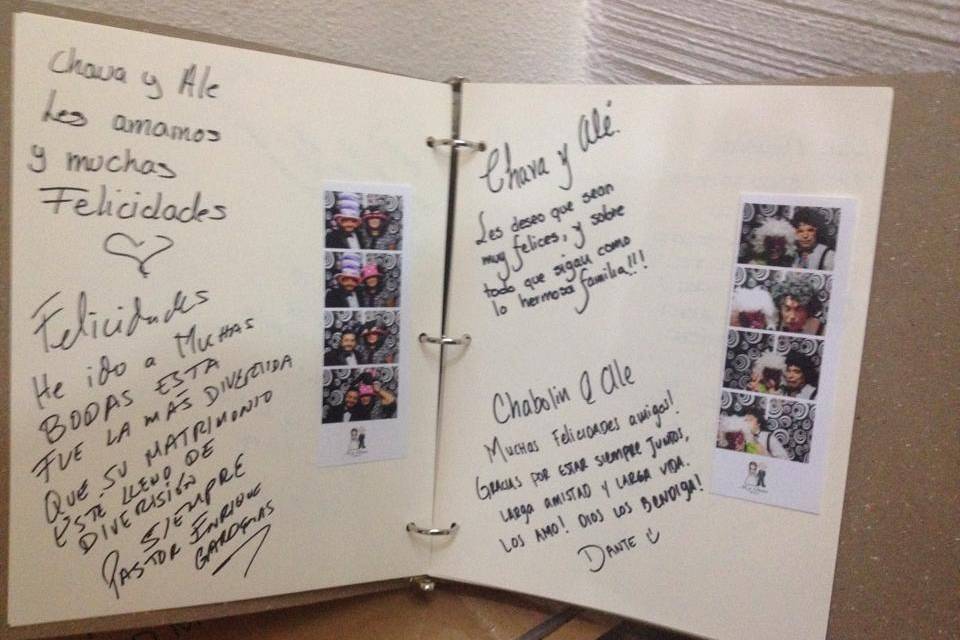 Chava y Ale
Les amamos
y muchas
Felicidades
Felicidades
He ido a MUCHAS
BODAS ESTA
FUE LA MAS DIVERTIDA
QUE SU MATRIMONIO
ESTE LLENO DE
DIVERSIÓN
SIEMPRE
PASTOR ENRIQUE
Chava y Alé.
Les deseo que sean
muy felices, y sobre
todo que sigan como
lo hermosa familia!!!
Chabolin & Ale
MUCHAS FELICIDADES amigou!
GRACIAS POR ESTAR SIEMPRE JUNTOS,
LARGA AMISTAD Y LARGA VIDA.
LOS AMO! DIOS LOS BENDIGA!
DANTE